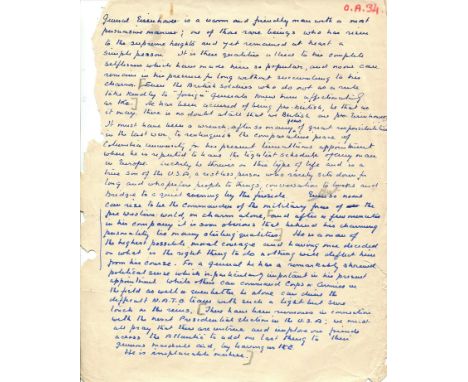 O.A.34.
General Eisenhower is a warm and friendly man with a most
persuasive manner; one of those rare beings who has risen
to the supreme heights and yet remained at heart a
simple person. It is these qualities & his complete
selflessness which have made him so popular, and none can
remain in his presence for long without succumbing to his
charm. [Even the British soldiers who do not as a rule
take kindly to "foreign" generals knew him affectionately
as Ike.] He has been accused of being pro-British, be that as
it may, there is no doubt at all that we British are pro Eisenhower.
It must have been a wrench, after so many years of great responsibilities
in the last war, to relinquish the comparative peace of
Columbia University for his present tumultuous appointment
where he is reputed to have the tightest schedule of any man
in Europe. Luckily he thrives on this type of life and is a
true son of the U.S.A., a restless person who rarely sits down for
long and who prefers people to things, conversation to books and
bridge to a quiet evening by the fireside. no one
can rise to be the commander of the military forces of the
free western world on charm alone, [and after a few minutes
in his company it is soon obvious that behind his charming
personality lie many sterling qualities.] He is a man of
the highest possible moral courage and having once decided
on what is the right thing to do nothing will deflect him
from his course. For a general he has a remarkably shrewd
political sense which is particularly important in his present
appointment. While others can command Corps or Armies in
the field as well or even better he alone can drive the
difficult N.A.T.O. team with such a light but sure
touch on the reins. [There have been rumours in connection
with the next Presidential election in the U.S.A.; we must
all pray that these are untrue and implore our friends
across the Atlantic to add one last thing to their
generous marshall aid, by leaving us IKE
He is irreplaceable.]